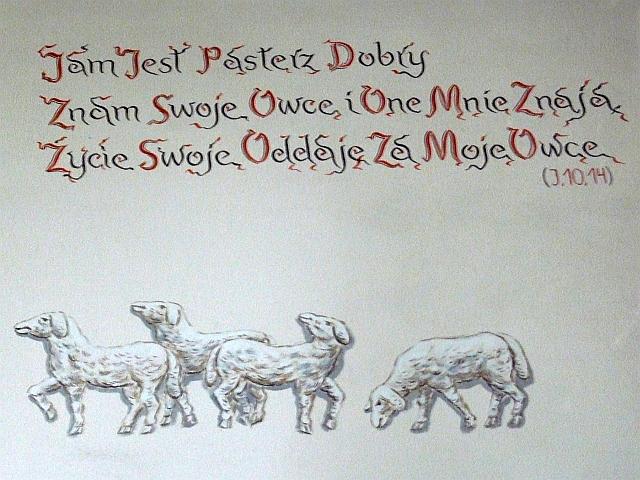 Jam Jest Pasterz Dobry
Znam Swoje Owce i One Mnie Znają
Życie Swoje Oddaję Za Moje Owce
(J.10.14)